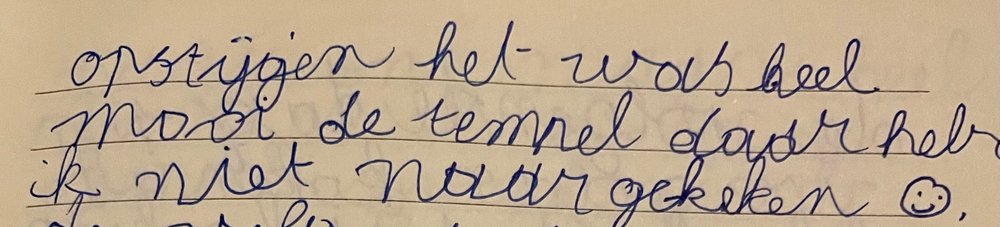 opstijgen het was heel
mooi de tempel daar heb
ik niet naar gekeken ☺.